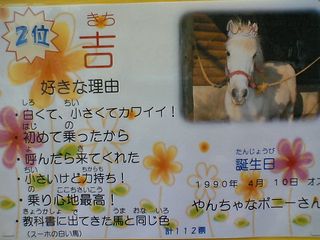 2位
きち
吉
好きな理由
しろ ちい
・白くて、小さくてカワイイ！
はじ の
・初めて乗ったから
よ き
・呼んだら来てくれた
ちい ちから も
・小さいけど力持ち！
の ここちさいこう
・乗り心地最高！
きょうかしょ で うま おな いろ
・教科書に出てきた馬と同じ色
（スーホの白い馬）
計112票
たんじょうび
誕生日
1990年 4月 10日 オス
やんちゃなポニーさん